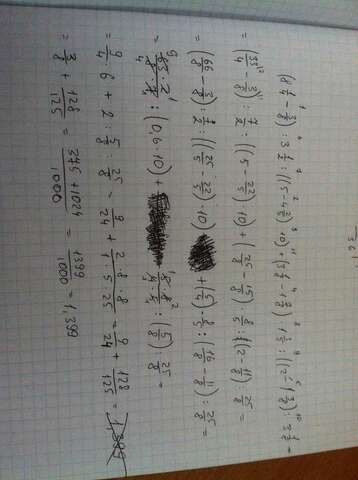 (8 1/4 - 3/8) : 3 1/2 : ((5 - 4 2/5) · 10) + (3 1/8 - 1 7/8) : 1 3/5 : ((2 - 1 3/8) : 3 1/8 =
= (33/4 - 3/8) : 7/2 : ((5 - 22/5) · 10 + (25/8 - 15/8) · 5/8 : ((2 - 11/8) : 25/8 =
= (66/8 - 3/8) : 7/2 : ((25/5 - 22/5) · 10) + (5/4) · 8/5 : (16/8 - 11/8) : 25/8 =
= 63 · 2/8 · 7 : (0,6 · 10) + : (5/8) : 25/8 =
= 9/4 · 6 + 2 : 5/8 : 25/8 = 9/24 + 2 · 8 · 8/1 · 5 · 25 = 9/24 + 128/125 =
= 3/8 + 128/125 = 375 + 1024/1000 = 1399/1000 = 1,399